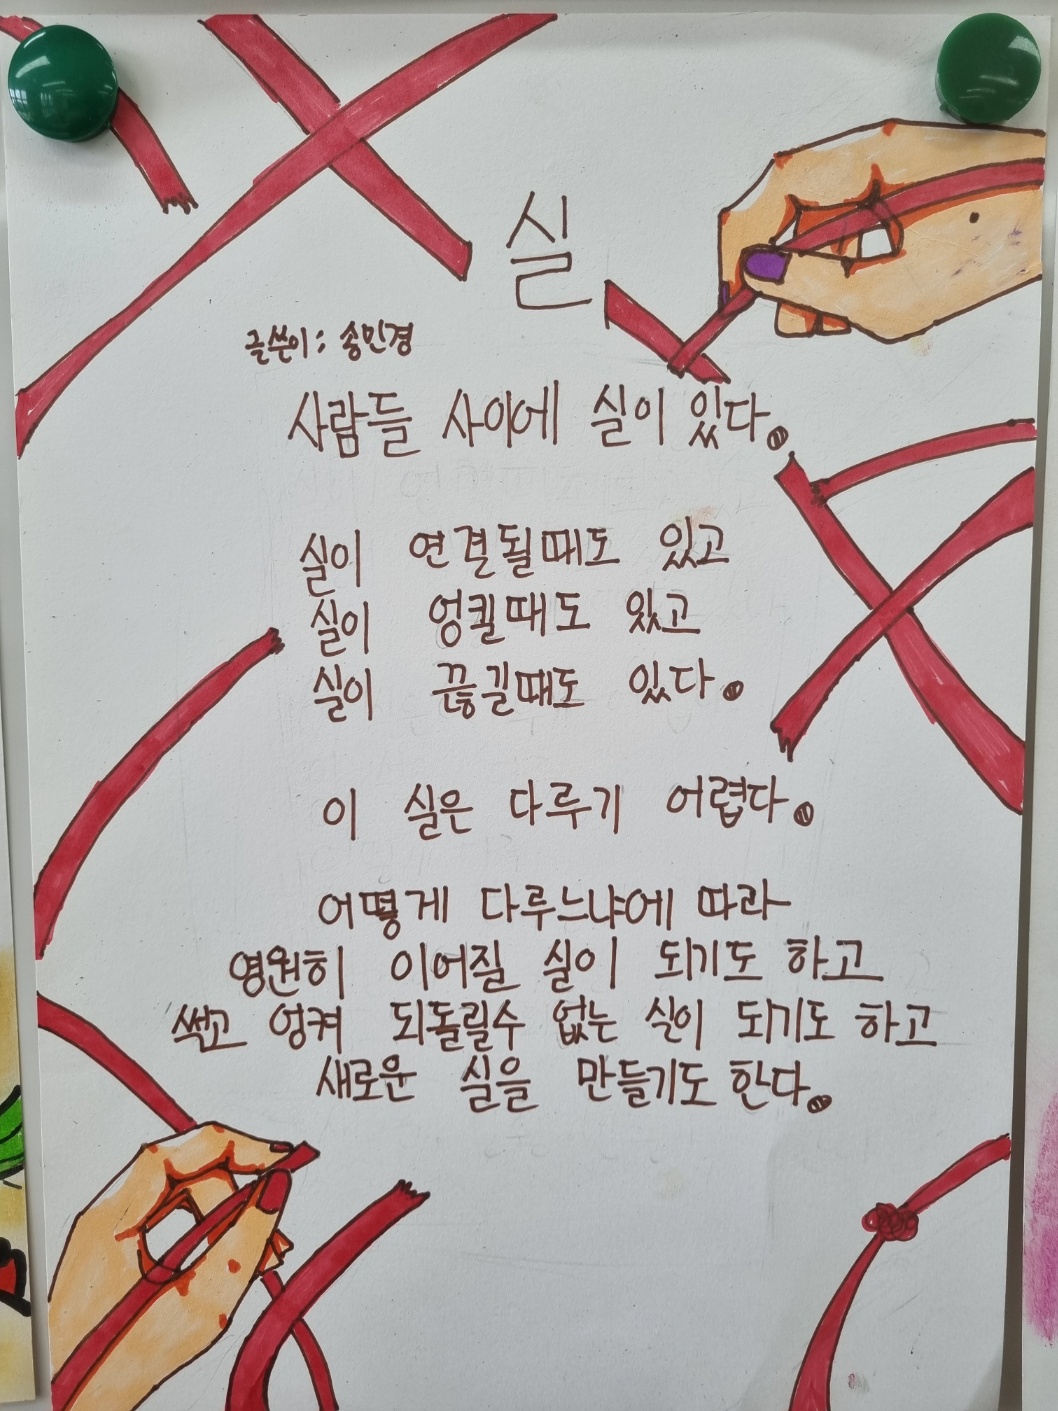 실
글쓴이: 송민경
사람들 사이에 실이 있다.
실이 연결될때도 있고
실이 엉퀼때도 있고
실이 끊길때도 있다.
이 실은 다루기 어렵다.
어떻게 다루느냐에 따라
영원히 이어질 실이 되기도 하고
썩고 엉켜 되돌릴수 없는 실이 되기도 하고
새로운 실을 만들기도 한다.